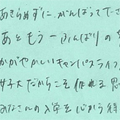 あきらめずに、がんばってでき
あともう一ふんばりの
かがやかしいキャンパスライフ
女子大だからこそ作れる思
みなさんの入学を心から待